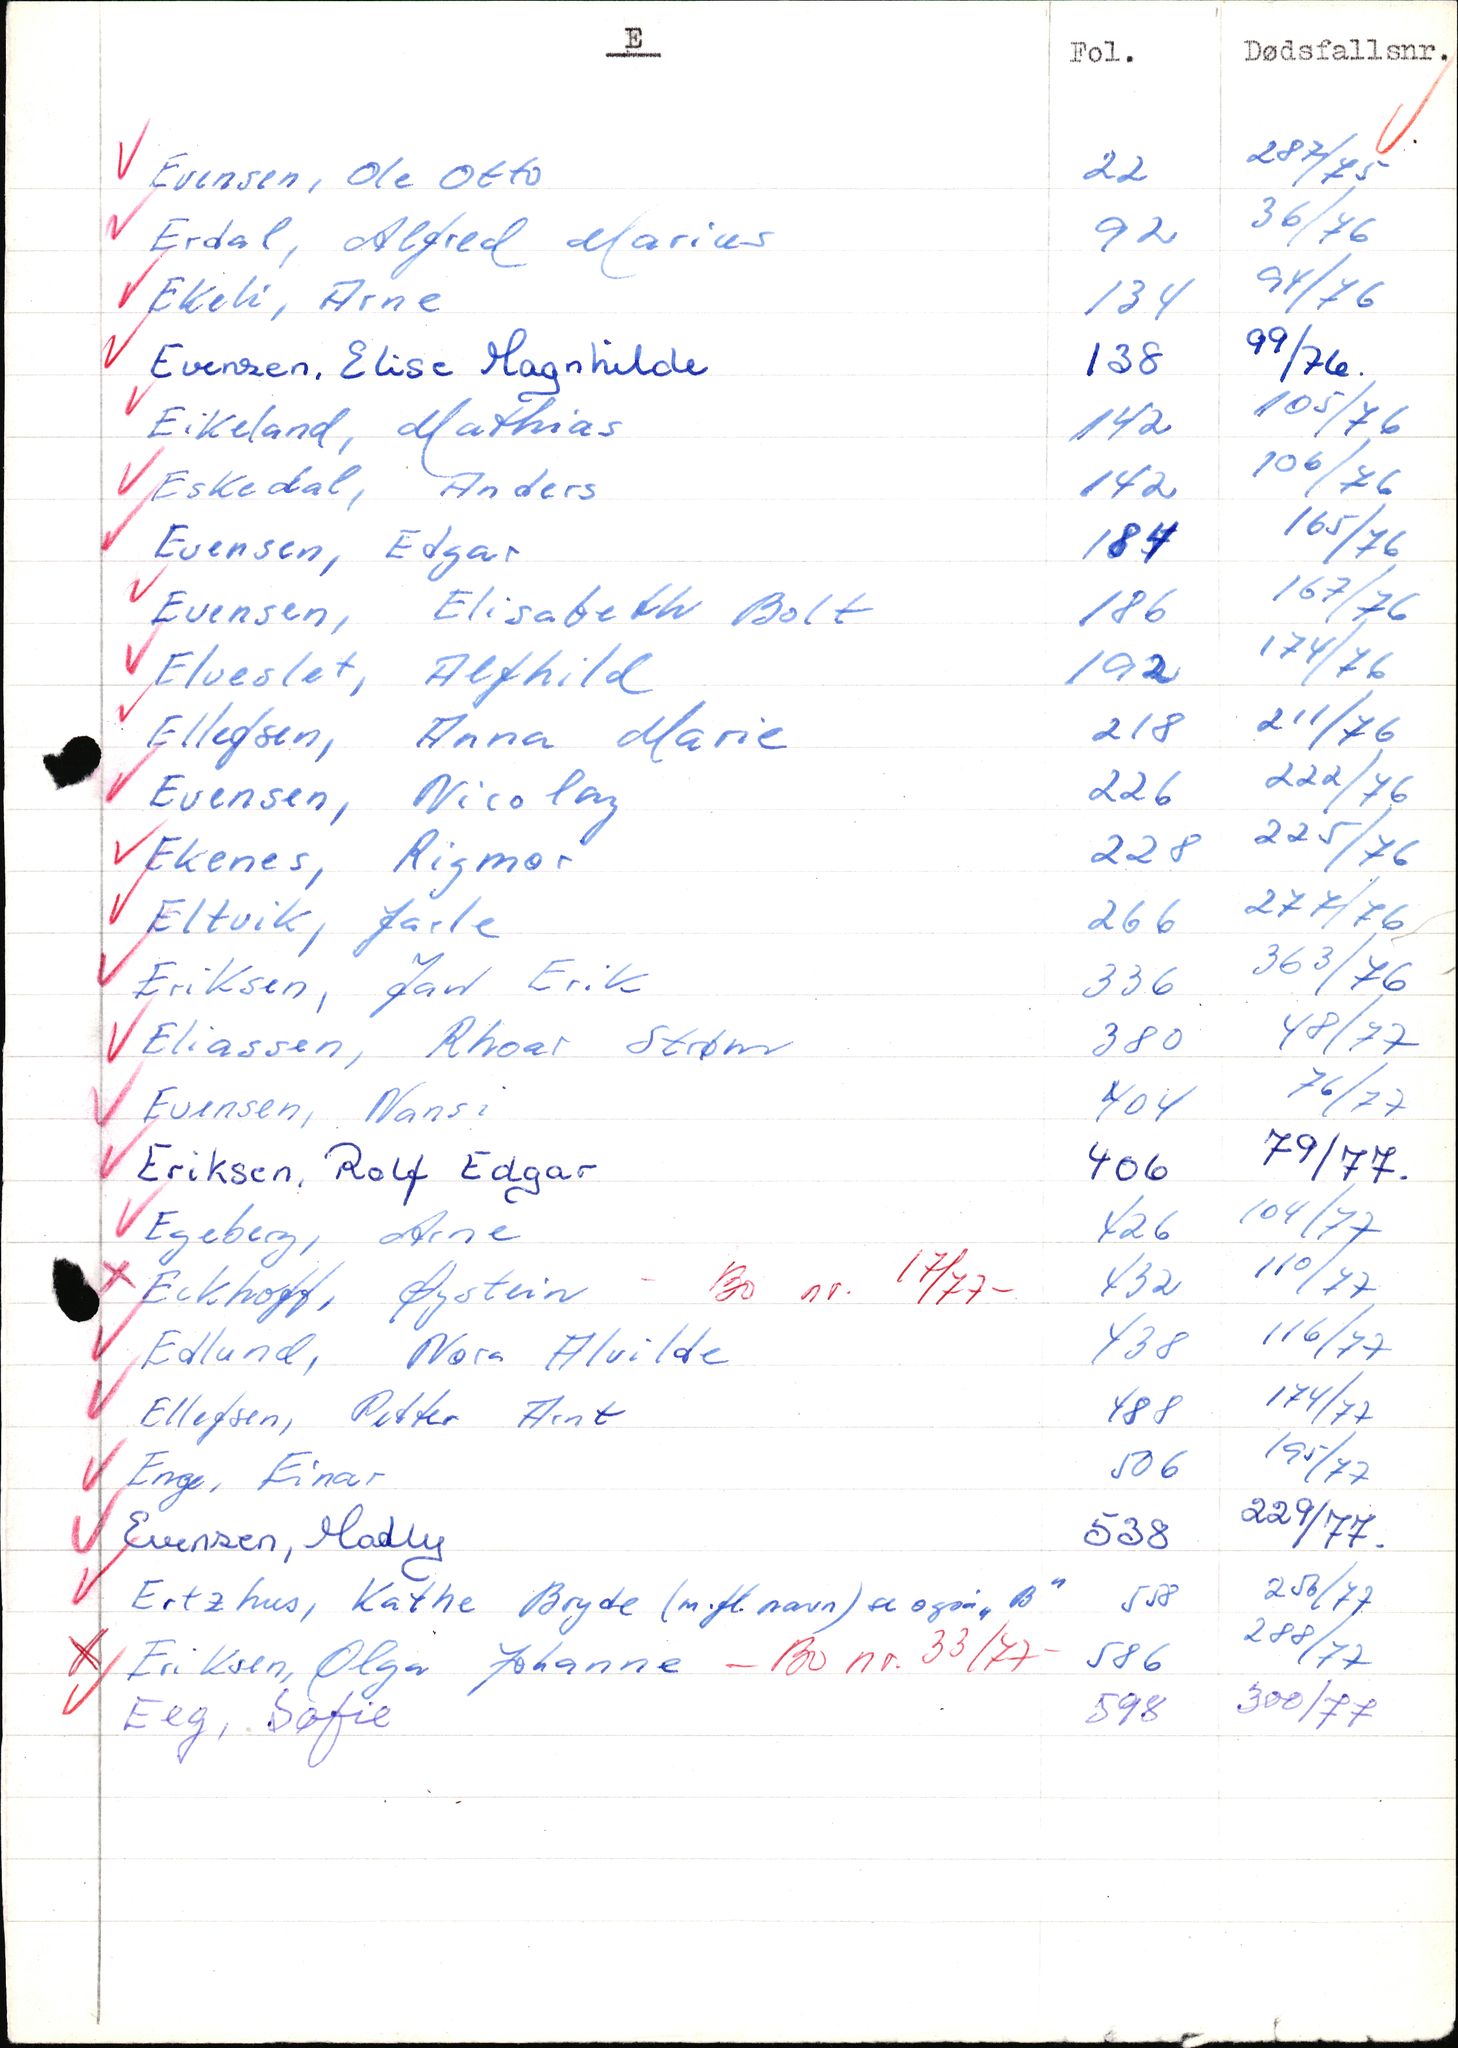 E Fol. Dødsfallsnr.
Evensen, Ole Otto 22 287/75
Erdal, Alfred Marius 92 36/76
Ekeli, Arne 134 94/76
Evensen, Elise Magnhilde 138 99/76.
Eikeland, Mathias 142 105/76
Eskedal, Anders 142 106/76
Evensen, Edgar 184 165/76
Evensen, Elisabeth Bolt 186 167/76
Elveslet, Alfhild 192 174/76
Ellefsen, Anna Marie 218 211/76
Evensen, Nicolay 226 222/76
Ekenes, Rigmor 228 225/76
Eltvik, Jarle 266 277/76
Eriksen, Jan Erik 336 363/76
Eliassen, Rhoar Strøm 380 48/77
Evensen, Nansi 404 76/77
Eriksen, Rolf Edgar 406 79/77.
Egeberg, Arne 426 104/77
Eckhoff, Øystein - Bo nr. 17/77- 432 110/77
Edlund, Nora Alvilde 438 116/77
Ellefsen, Petter Arnt 488 174/77
Enge, Einar 506 195/77
Evensen, Madly 538 229/77.
Ertzhus, Kathe Bryde (m.fl. navn) se også „B" 558 256/77
Eriksen, Olga Johanne - Bo nr. 33/77- 586 288/77
Eeg, Sofie 598 300/77